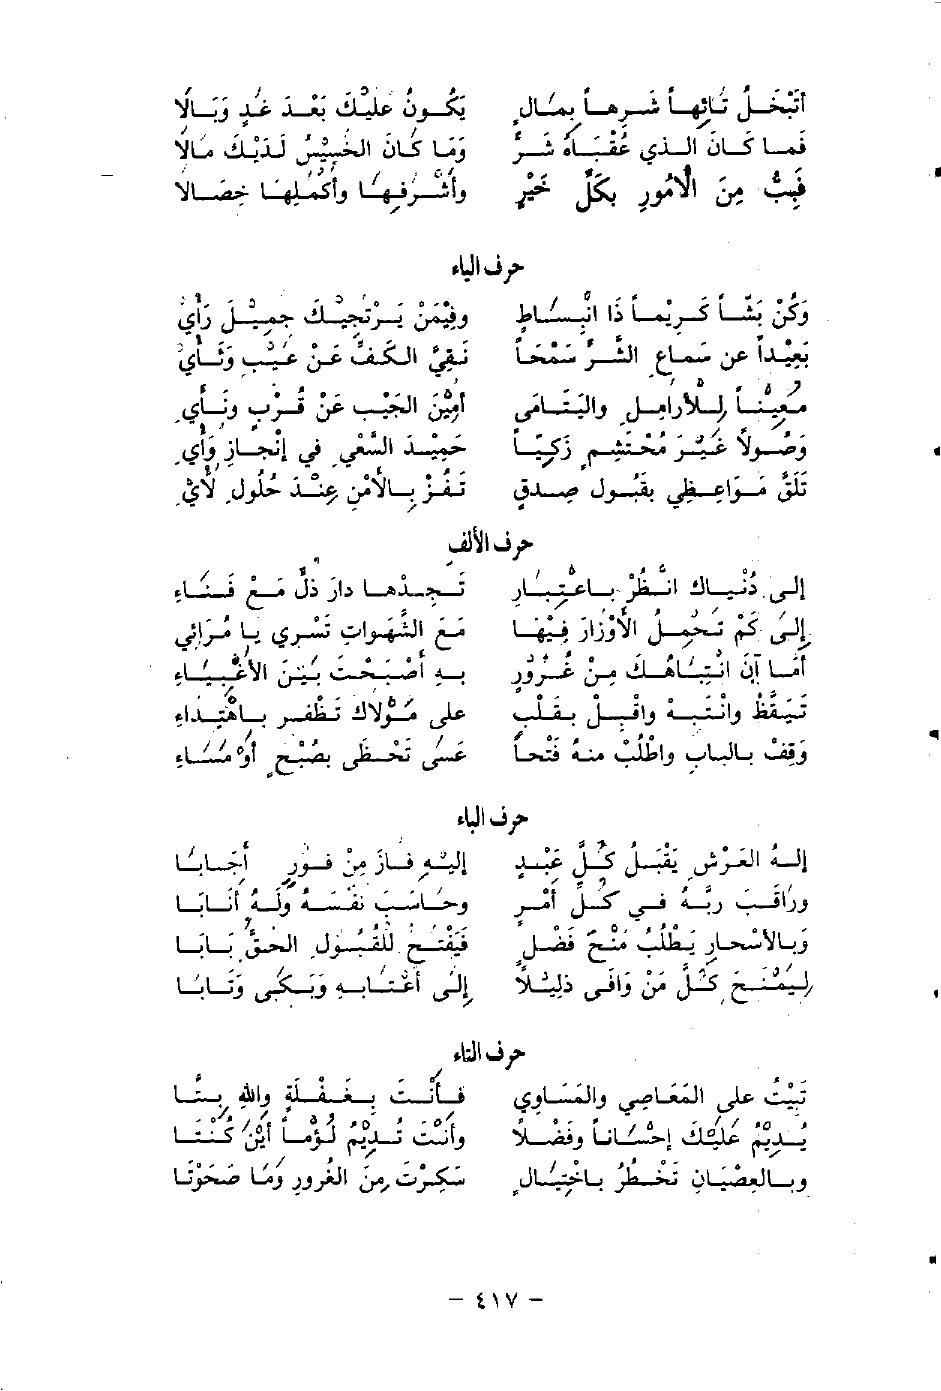 أَتَبْخَلُ تَائِهاً شَرِهاً بِمَالٍ يَكُونُ عَلَيْكَ بَعْدَ غَدٍ وَبَالَا
فَمَا كَانَ الذي عُقْبَاهُ شَرٌّ وَمَا كَانَ الخَسِيْسُ لَدَيْكَ مَالَا
فَبِتْ مِنَ الأُمُورِ بِكُلِّ خَيْرٍ وأَشْرَفِهَا وأَكْمَلِهَا خِصَالَا
حرف الياء
وَكُنْ بَشّاً كَرِيْماً ذَا انْبِسَاطٍ وفِيْمَنْ يَرْتَجِيْكَ جَمِيْلَ رَأْيِ
بَعِيْداً عن سَمَاعِ الشَّرِّ سَمْحَاً نَقِيَّ الكَفِّ عَنْ عَيْبٍ وَثَأْيِ
مُعِيْناً لِلأَرَامِلِ واليَتَامَى أَمِيْنَ الجَيْبِ عَنْ قُرْبٍ ونَأْيِ
وَصُولاً غَيْرَ مُحْتَشِمٍ زَكِيّاً حَمِيْدَ السَّعْيِ في إِنْجَازِ وَأْيِ
تَلَقَّ مَوَاعِظِي بِقَبُولِ صِدقٍ تَفُزْ بِالأَمْنِ عِنْدَ حُلُولِ لَأْيِ
حرف الألف
إلى دُنْيَاكَ انْظُرْ بِاعْتِبَارِ تَجِدْهَا دارَ ذُلٍّ مَعْ فَنَاءِ
إلىَ كَمْ تَحْمِلُ الأَوْزَارَ فِيْهَا مَعَ الشَّهَواتِ تَسْرِي يا مُرَائِي
أَمَا آنَ انْتِبَاهُكَ مِنْ غُرُورٍ بِهِ أَصْبَحْتَ بَيْنَ الأَغْبِيَاءِ
تَيَقَّظْ وانْتَبِهْ واقْبِلْ بِقَلْبٍ على مَوْلَاكَ تَظْفَر بِاهْتِدَاءِ
وَقِفْ بالبابِ واطْلُبْ منهُ فَتْحاً عَسَى تَحْظَى بِصُبْحٍ أَوْ مَسَاءِ
حرف الباء
إلهُ العَرْشِ يَقْبَلُ كُلَّ عَبْدٍ إليْهِ فَازَ مِنْ فَوْرٍ أَجَابَا
ورَاقَبَ ربَّهُ في كُلِّ أَمْرٍ وحَاسَبَ نَفْسَهُ وَلَهُ أَنَابَا
وَبالأَسْحارِ يَطْلُبُ مَنْحَ فَضْلٍ فَيَفْتَحُ لِلْقَبُولِ الحَقُّ بَابَا
لِيُمْنَحَ كُلُّ مَنْ وَافَى ذَلِيْلاً إلَى أَعْتَابِهِ وَبَكَى وَتَابَا
حرف التاء
تَبِيْتُ على المَعَاصِي والمَسَاوِي فَأَنْتَ بِغَفْلَةٍ واللهِ بِتَّا
يُدِيْمُ عَلَيْكَ إحْسَاناً وفَضْلاً وأَنْتَ تُدِيْمُ لَوْماً أَيْنَ كُنْتَا
وبالعِصْيَانِ تَخْطُرُ بِاخْتِيَالٍ سَكِرْتَ مِنَ الغُرورِ وَمَا صَحَوْتَا
- ٤١٧ -